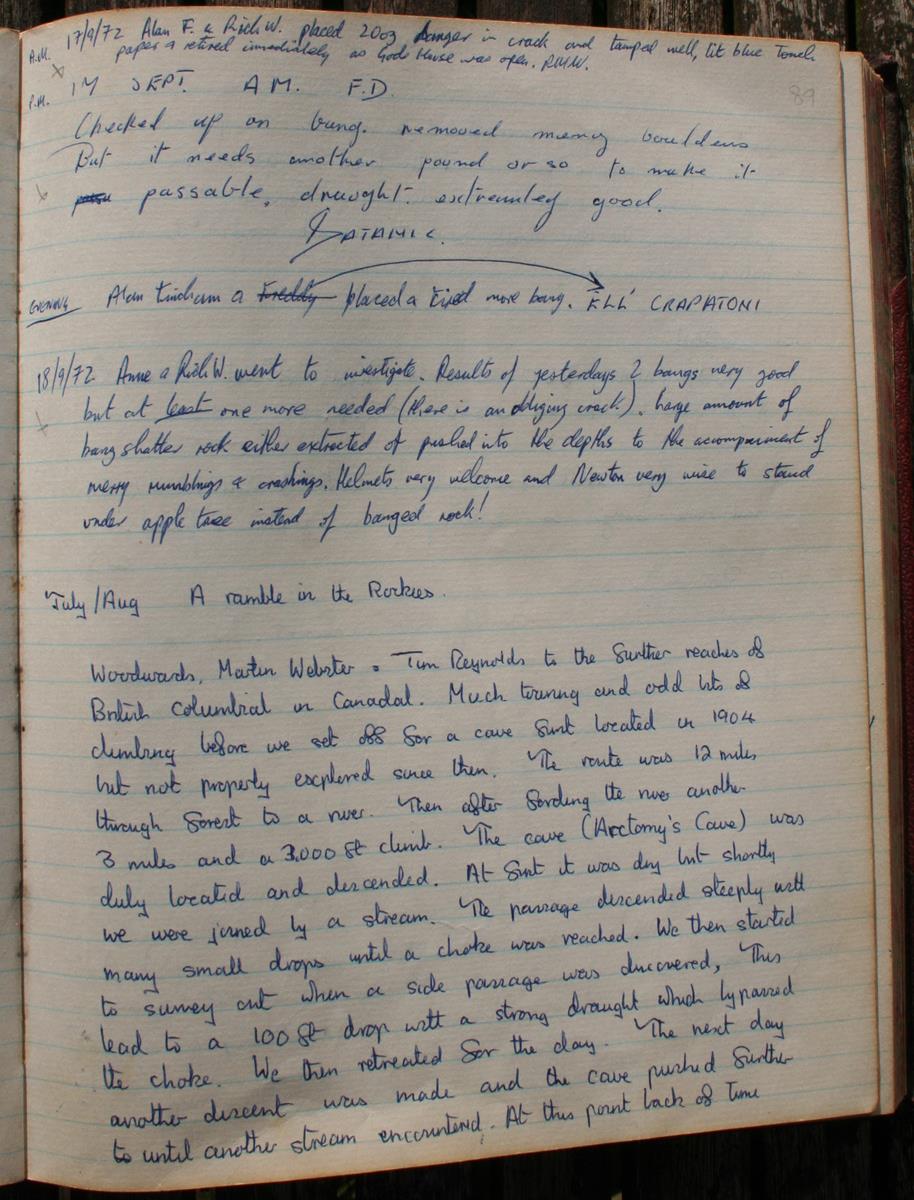 A.M. 17/9/72 Alan F. & Rich W. placed 20oz banger in crack and tamped well, lit blue Touch
paper & retired immediately as Gods House was open. RMW.
89
P.M. 17 SEPT. AM. F.D.
Checked up on bang. removed many boulders
But it needs another pound or so to make it
passable, draught. extremley good.
SATANIC.
EVENING Alan Fincham & Freddy placed a tired more bang. ELL' CRAPATONI
18/9/72 Anne & Rich W. went to investigate. Results of yesterdays 2 bangs very good
but at least one more needed (there is an obliging crack). Large amount of
bang shatter rock either extracted of pushed into the depths to the accompaiment of
merry rumblings & crashings. Helmets very welcome and Newton very wise to stand
under apple tree instead of banged rock!
July/Aug A ramble in the Rockies.
Woodwards, Martin Webster & Tim Reynolds to the further reaches of
British Columbial in Canadal. Much touring and odd bits of
climbing before we set off for a cave first located in 1904
but not properly explored since then. The route was 12 miles
through forest to a river. Then after fording the river another
3 miles and a 3,000 ft climb. The cave (Arctomy's Cave) was
duly located and descended. At first it was dry but shortly
we were joined by a stream. The passage descended steeply with
many small drops until a choke was reached. We then started
to survey out when a side passage was discovered, This
lead to a 100 ft drop with a strong draught which bypassed
the choke. We then retreated for the day. The next day
another descent was made and the cave pushed further
to until another stream encountered. At this point lack of Time